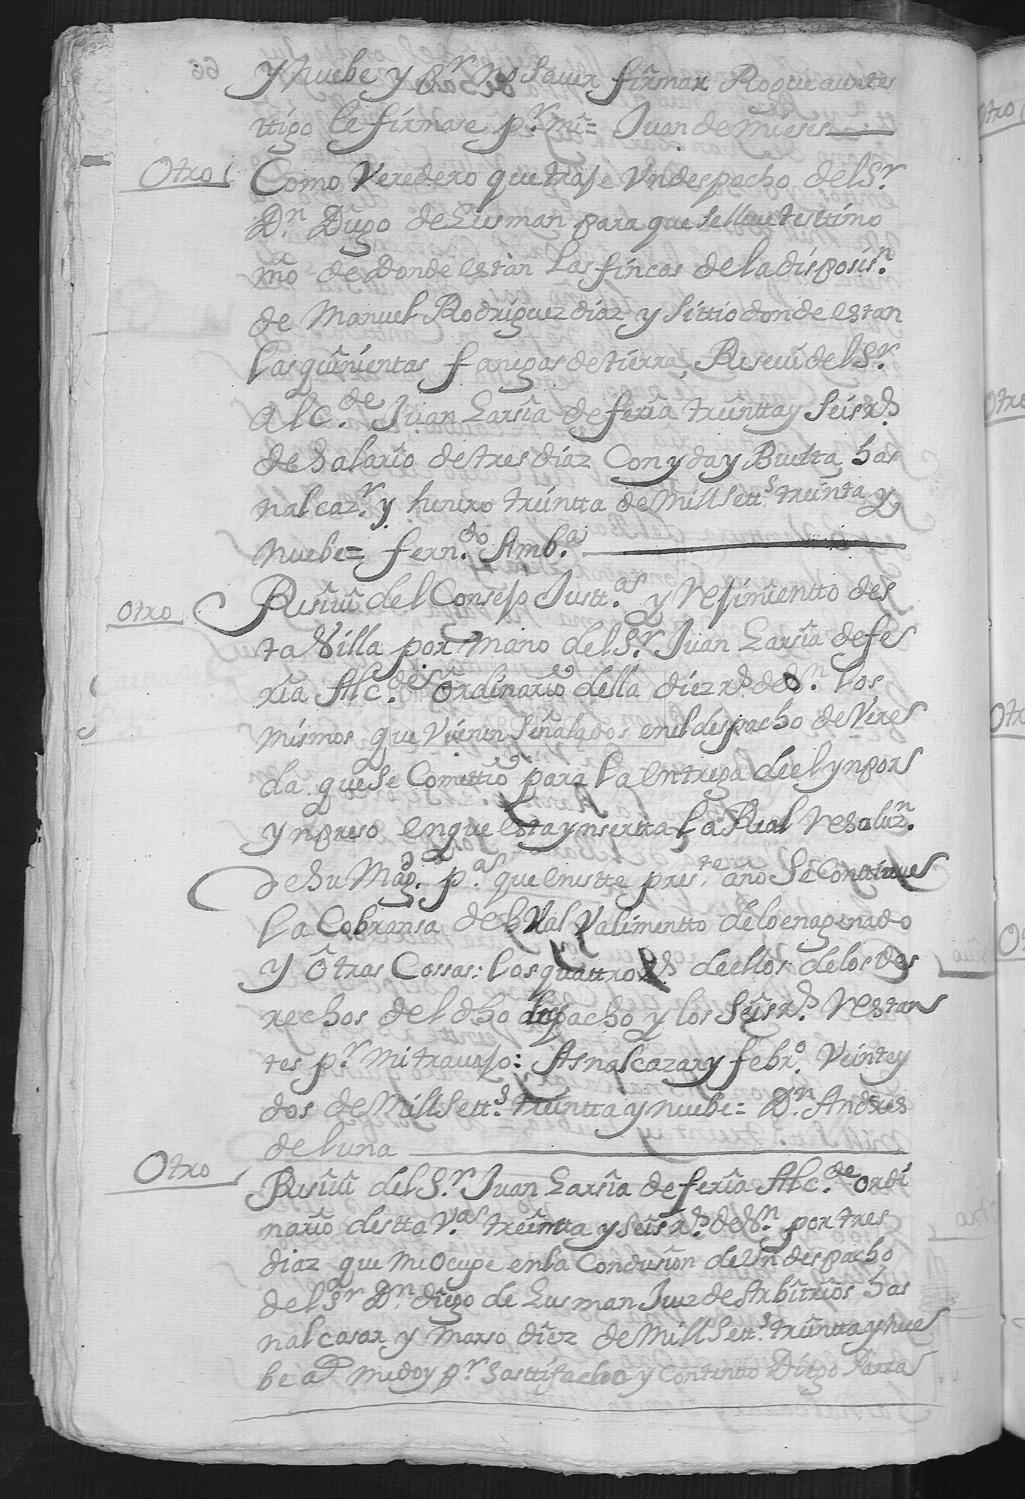 y nuebe y p.r no saver firmar Rogue a un tes
ttigo le firmase p.r mi= Juan de mieses
Otro Como Veredero que traje Vn despacho del S.r
D.n Diego de Gusman para que se lleue testtimo
nio de Donde estan Las fincas de la disposis.n
de Manuel Rodriguez diaz y sittio donde estan
las quinientas fanegas de tierra, Reseui del S.r
Alc.de Juan Garsia de feria treintta y seis r.s
de Salario de tres diaz Con yda y Buelta has
nalcaz.r y henero treintta de Mill Sett.s treinta y
nuebe= fern.do Amb.a
Otro Resiui del Consejo Justt.as y Rejimientto des
ta Villa por mano del S.r Juan Garsia de fe
ria Alc.de Ordinario della diez r.s de v.n los
mismos que Vienen Señalados en el despacho de Vere
da que se Comettio para la entrega de el ynpors
ynpreso en que esta ynsertta la Real Resoluz.n
de Su Mag.d p.a que en istte pres.te año Se Continue
La Cobransa de el Val Valimentto de lo enagenado
y Otras Cossas: los quattro r.s de ellos de los des
rechos del dho despacho y los Seis r.s Restan
tes p.r mi travajo: Asnalcazar y febr.o Veinte y
dos de Mill Sett.s treintta y nuebe= D.n Andres
de luna
Otro Resiui del S.r Juan Garsia de feria Alc.de ordi
nario destta V.a treintta y seis r.s de v.n por tres
diaz que me Ocupe en la Condusion de Vn despacho
del S.r D.n diego de Gusman Juez de Arbitrios has
nalcasar y Marso diez de Mill Sett.s treintta y nue
be a q me doy p.r Sasttifacho y Contentto Diego Parra